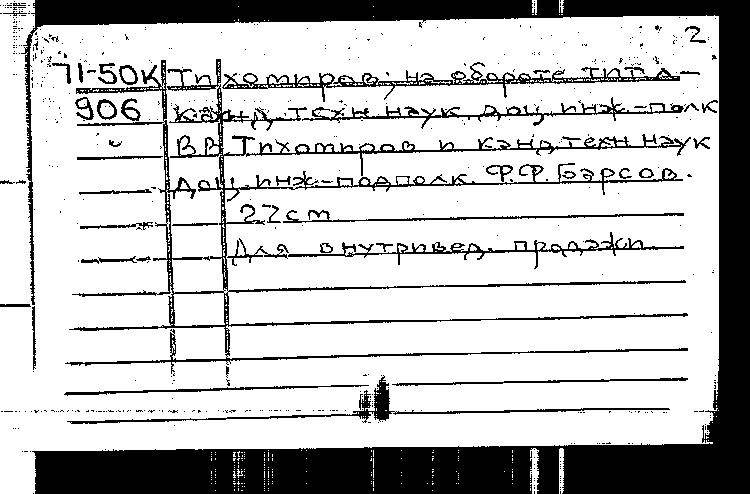 2
71-50К Тихомиров; на обороте тит. л. —
906 канд. техн. наук доц. инж.-полк.
В.В. Тихомиров и канд. техн. наук
доц. инж.-подполк. Ф.Ф. Барсов.
22 см
Для внутривед. продажи.